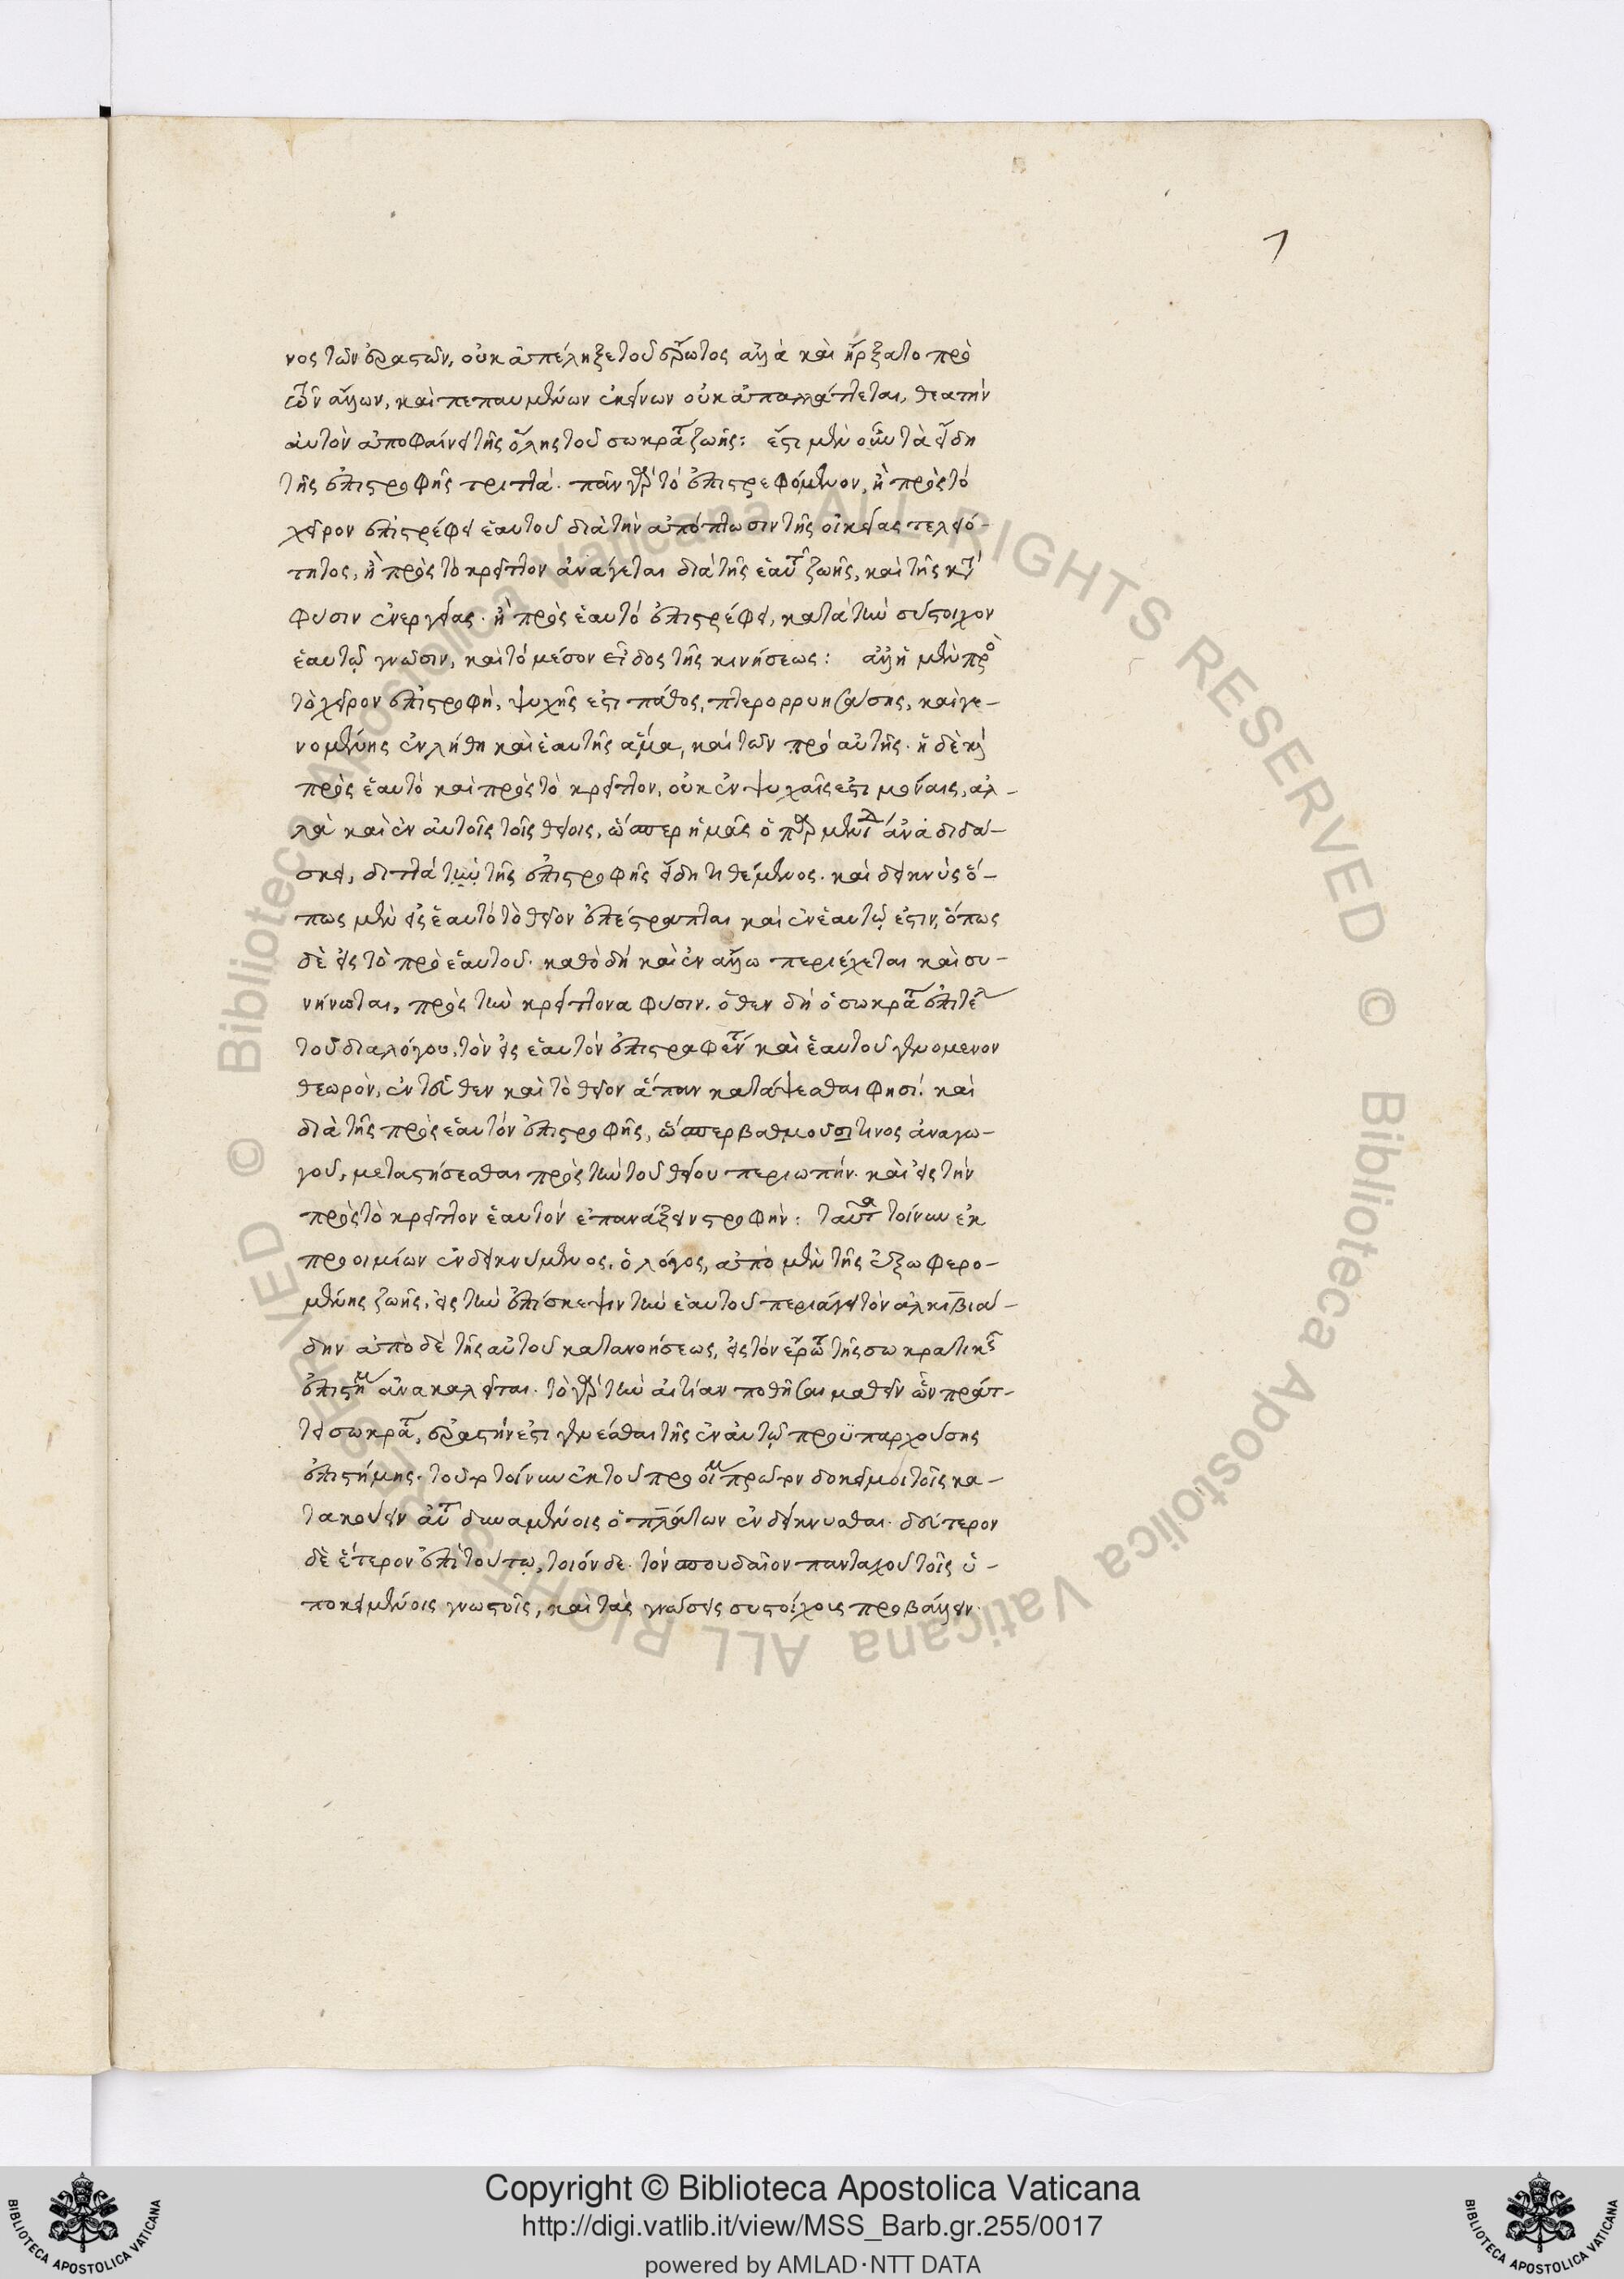 7
νος τῶν ἐραστῶν, οὐκ ἀπέληξε τοῦ ἔρωτος ἀλλὰ καὶ ἤρξατο πρὸ
τῶν ἄλλων, καὶ πεπαυμένων ἐκείνων οὐκ ἀπαλλάττεται, θεατὴν
ἀυτὸν ἀποφαίνει τῆς ὅλης τοῦ σωκρατ ζωῆς: ἔστι μὲν οὖν τὰ εἴδη
τῆς ἐπιστροφῆς τριττά. πᾶν γὰρ τὸ ἐπιστρεφόμενον, ἢ πρὸς τὸ
χεῖρον ἐπιστρέφει ἑαυτοῦ διὰ τὴν ἀπόπτωσιν τῆς οἰκείας τελειό-
τητος, ἢ πρὸς τὸ κρεῖττον ἀνάγεται διὰ τῆς ἑαυτ ζωῆς, καὶ τῆς κατ
φυσιν ἐνεργείας. ἢ πρὸς ἑαυτὸ ἐπιστρέφει, κατὰ τὴν σύστοιχον
ἑαυτῷ γνῶσιν, καὶ τὸ μέσον εἶδος τῆς κινήσεως: ἀλλ ἡ μὲν πρὸ
τὸ χεῖρον ἐπιστροφὴ, ψυχῆς ἐστι πάθος, πτερορρυησάσης, καὶ γε-
νομένης ἐν λήθη καὶ ἑαυτῆς ἅμα, καὶ τῶν πρὸ αὐτῆς. ἡ δὲ καὶ
πρὸς ἑαυτὸ καὶ πρὸς τὸ κρεῖττον, οὐκ ἐν ψυχαῖς ἐστι μόναις, ἀλ-
λὰ καὶ ἐν ἀυτοῖς τοῖς θείοις, ὥσπερ ἡμᾶς ὁ παρμενίδ ἀναδιδά-
σκει, διττὰ τῆς ἐπιστροφῆς εἴδη τιθέμενος. καὶ δεικνὺς ὅ-
πως μὲν εἰς ἑαυτὸ τὸ θεῖον ἐπέστραπται καὶ ἐν ἑαυτῷ ἐστιν, ὅπως
δὲ εἰς τὸ πρὸ ἑαυτοῦ. καθὸ δὴ καὶ ἐν ἄλλω περιέχεται καὶ συ-
νήνωται, πρὸς τὴν κρείττονα φυσιν. ὅθεν δὴ ὁ σωκρατ ἐπι τέλ
τοῦ διαλόγου, τὸν εἰς ἑαυτὸν ἐπιστραφέντ καὶ ἑαυτοῦ γενομενον
θεωρὸν, ἐντεῦθεν καὶ τὸ θεῖον ἅπαν κατόψεσθαι φησί. καὶ
διὰ τῆς πρὸς ἑαυτὸν ἐπιστροφῆς, ὥσπερ βαθμοῦ τινος ἀναγω-
γοῦ, μεταστήσεσθαι πρὸς τὴν τοῦ θείου περιωπήν. καὶ εἰς τὴν
πρὸς τὸ κρεῖττον ἑαυτὸν ἐπανάξειν στροφὴν: ταῦτα τοίνυν ἐκ
προοιμίων ἐνδεικνύμενος, ὁ λόγος, ἀπὸ μὲν τῆς ἔξω φερο-
μένης ζωῆς, εἰς τὴν ἐπίσκεψιν τὴν ἑαυτοῦ περιάγει τὸν ἀλκιβιά-
δην ἀπὸ δὲ τῆς αὐτοῦ κατανοήσεως, εἰς τὸν ἔρωτ τῆς σωκρατικῆς
ἐπιστήμ ἀνακαλεῖται. τὸ γὰρ τὴν αἰτίαν ποθῆσαι μαθεῖν ὧν πράτ-
τει σωκράτ, ἐραστήν ἐστι γενέσθαι τῆς ἐν ἀυτῷ προϋπαρχούσης
ἐπιστήμης. τοῦτο τοίνυν ἐκ τοῦ προοιμ πρῶτον δοκεῖ μοι τοῖς κα-
τακούειν ἀυτ δυναμένοις ὁ πλάτων ἐνδείκνυσθαι. δεύτερον
δὲ ἕτερον ἐπὶ τούτῳ, τοιόνδε. τὸν σπουδαῖον πανταχοῦ τοῖς ὑ-
ποκειμένοις γνωστοῖς, καὶ τὰς γνώσεις συστοίχους προβάλλειν.
Copyright © Biblioteca Apostolica Vaticana
http://digi.vatlib.it/view/MSS_Barb.gr.255/0017
powered by AMLAD·NTT DATA
BIBLIOTECA APOSTOLICA VATICANA
BIBLIOTECA APOSTOLICA VATICANA
© Biblioteca Apostolica Vaticana ALL RIGHTS RESERVED
© Biblioteca Apostolica Vaticana ALL RIGHTS RESERVED